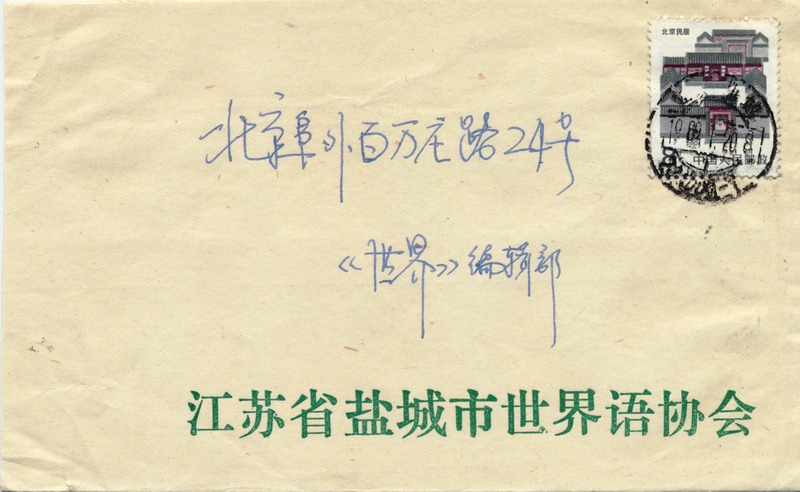 北京民居
中国人民邮政
北京阜外百万庄路24号
《世界》编辑部
江苏省盐城市世界语协会